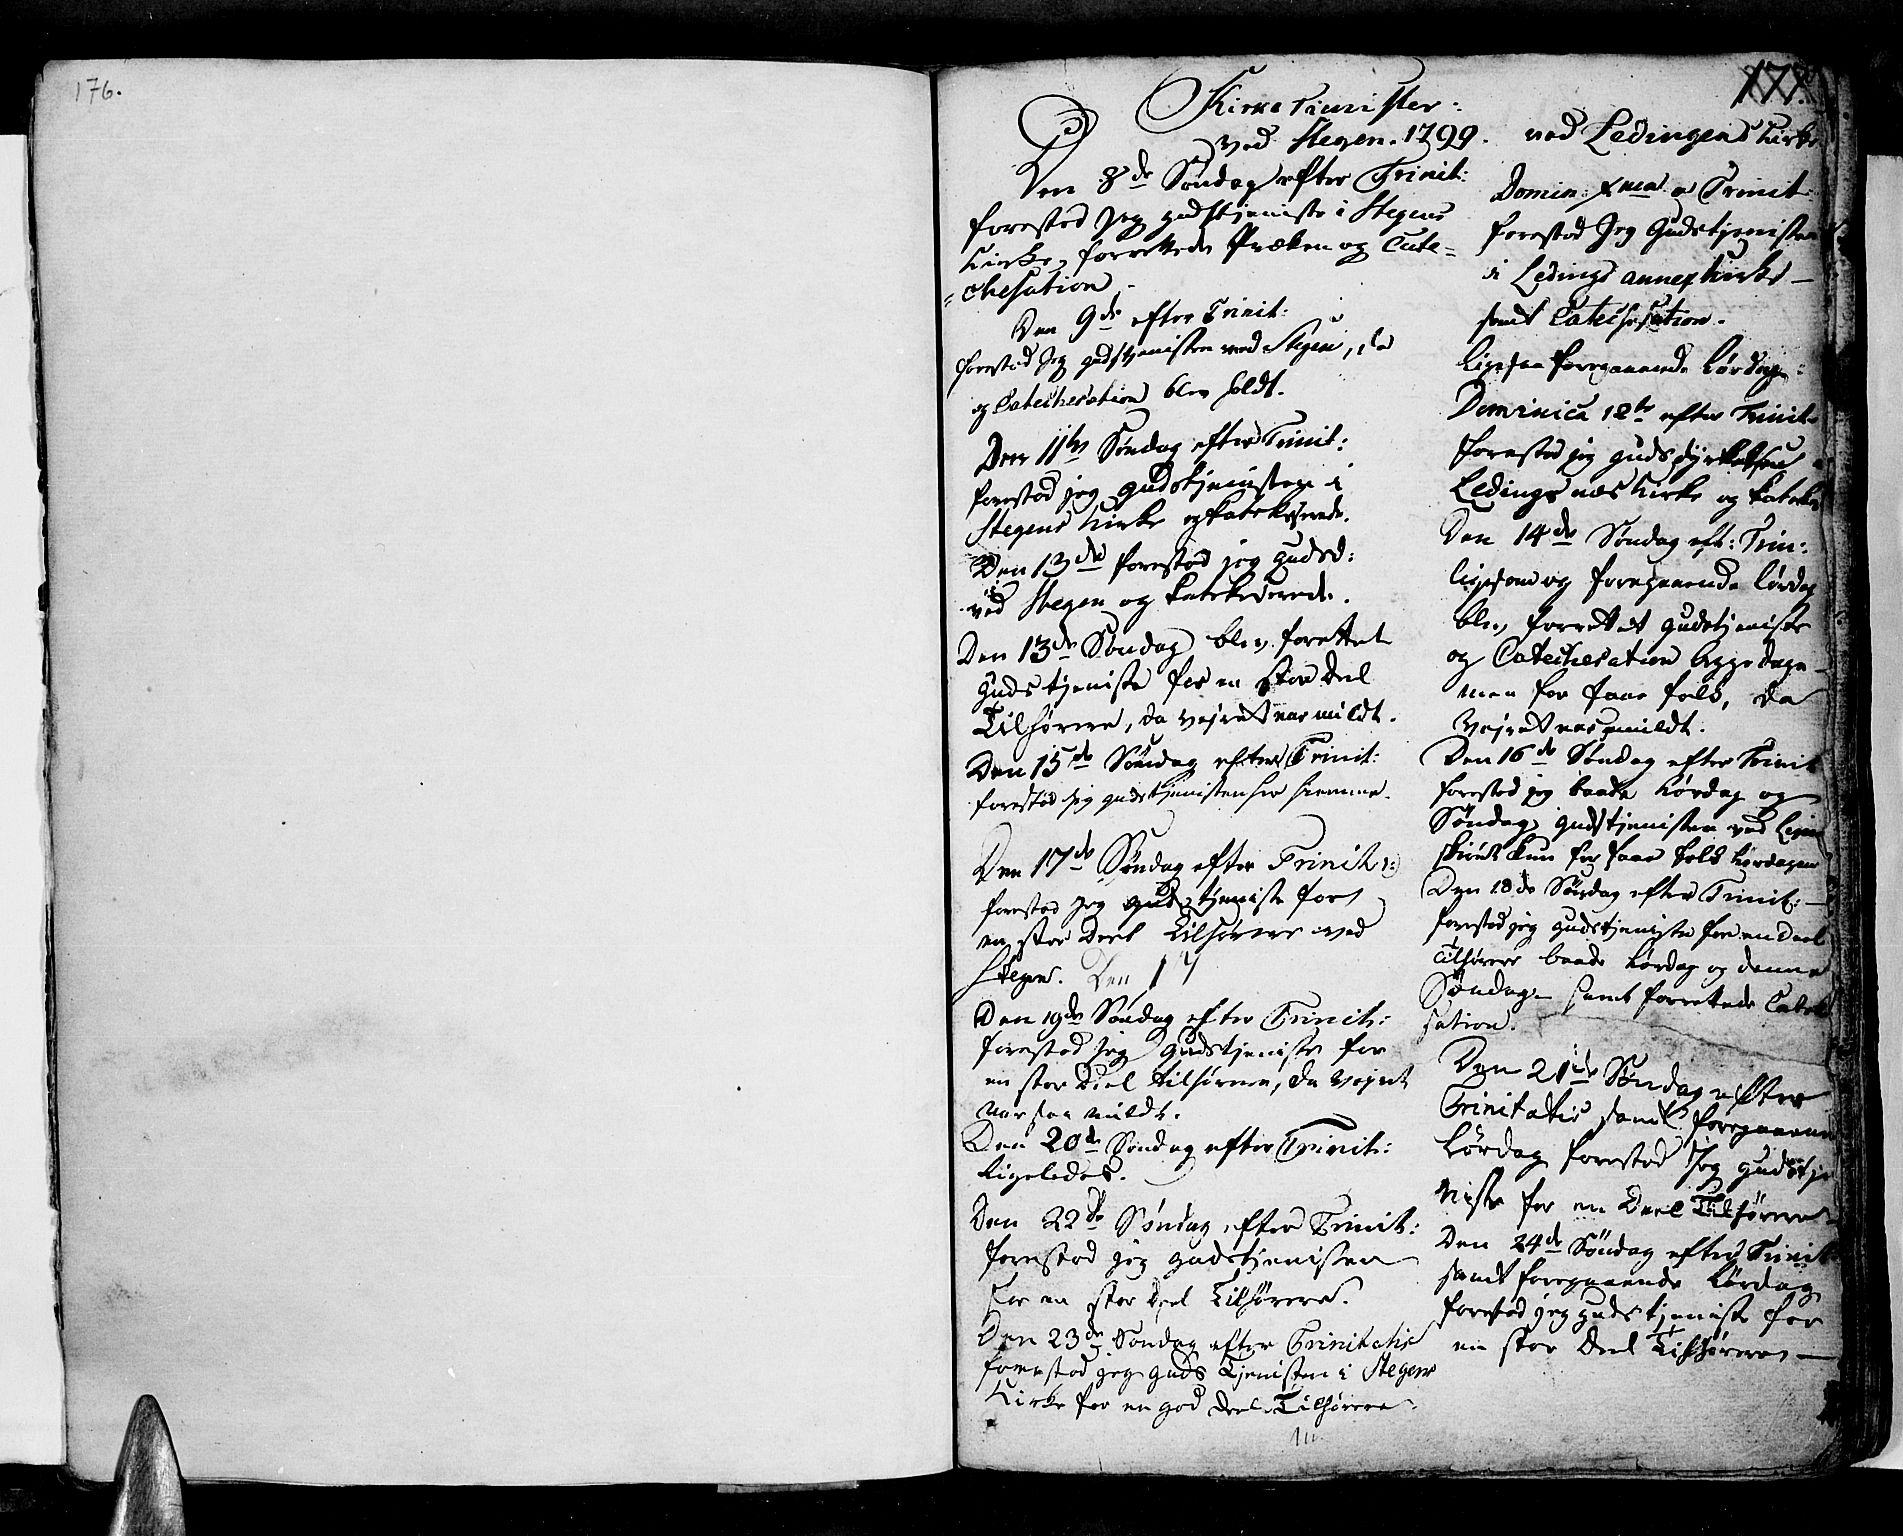 176.
177.
Kirke Tienister:
ved Stegen. 1799.
Den 8de Søndag efter Trinit:
forestod Jeg gudstjeniste i Stegens
Kirke, forrettede Præken og Cate-
=chesation.
Den 9de efter Trinit:
forestod Jeg gudstjenisten ved Stegen, da
og Catechesation blev holdt.
Den 11te Søndag efter Trinit:
forestod jeg gudstjenisten i
Stegens Kirke og katekiserede.
Den 13de forestod jeg gudsd:
ved Stegen og katekeserede.
Den 13de Søndag blev forettet
gudstjeniste for en stor Deel
Tilhørere, da vejret var mildt.
Den 15de Søndag efter Trinit:
forestod Jeg gudstjenisten her hiemme.
Den 17de Søndag efter Trinit:
forestod Jeg gudstjeniste for
en stor Deel Tilhørere ved
Stegen. Den 17
Den 19de Søndag efter Trinit:
forestod Jeg gudstjeniste for
en stor Deel tilhørere, da Vejret
var saa mildt.
Den 20de Søndag efter Trinit:
ligeledes.
Den 22de Søndag efter Trinit:
forestod jeg gudstjenisten
for en stor Deel Tilhørere.
Den 23de Søndag efter Trinitatis
forestod jeg guds Tjenisten i Stegens
Kirke for en god Deel Tilhørere.
ved Ledingens Kirke
Domin: Xma a Trinit:
forestod Jeg Gudstjenisten
i Ledings annex Kirke –
samt Catechesation.
ligesaa foregaaende Lørdag:
Dominica 12te efter Trinit:
forestod jeg gudsdyrkelsen
Ledings næs Kirke og katek
Den 14de Søndag eft: Trin:
ligesom og foregaaende Lørdag
blev forrettet gudstjeniste
og Catechesation begge dage
men for faae folk, da
Vejret var mildt.
Den 16de Søndag efter Trinit
forestod jeg baade Lørdag og
Søndag gudstjenisten ved
kun for faae folk Lørdagen
Den 18de Søndag efter Trinit: –
forestod jeg gudstjeniste for en Deel
Tilhørere baade Lørdag og denne
Søndag – samt forrettede Catek
sation.
Den 21de Søndag efter
Trinitatis samt foregaaende
Lørdag forestod Jeg gudstje
niste for en Deel Tilhørere
Den 24de Søndag efter Trinit:
samt foregaaende Lørdag
forestod jeg gudstjeniste for
en stor Deel Tilhørere –